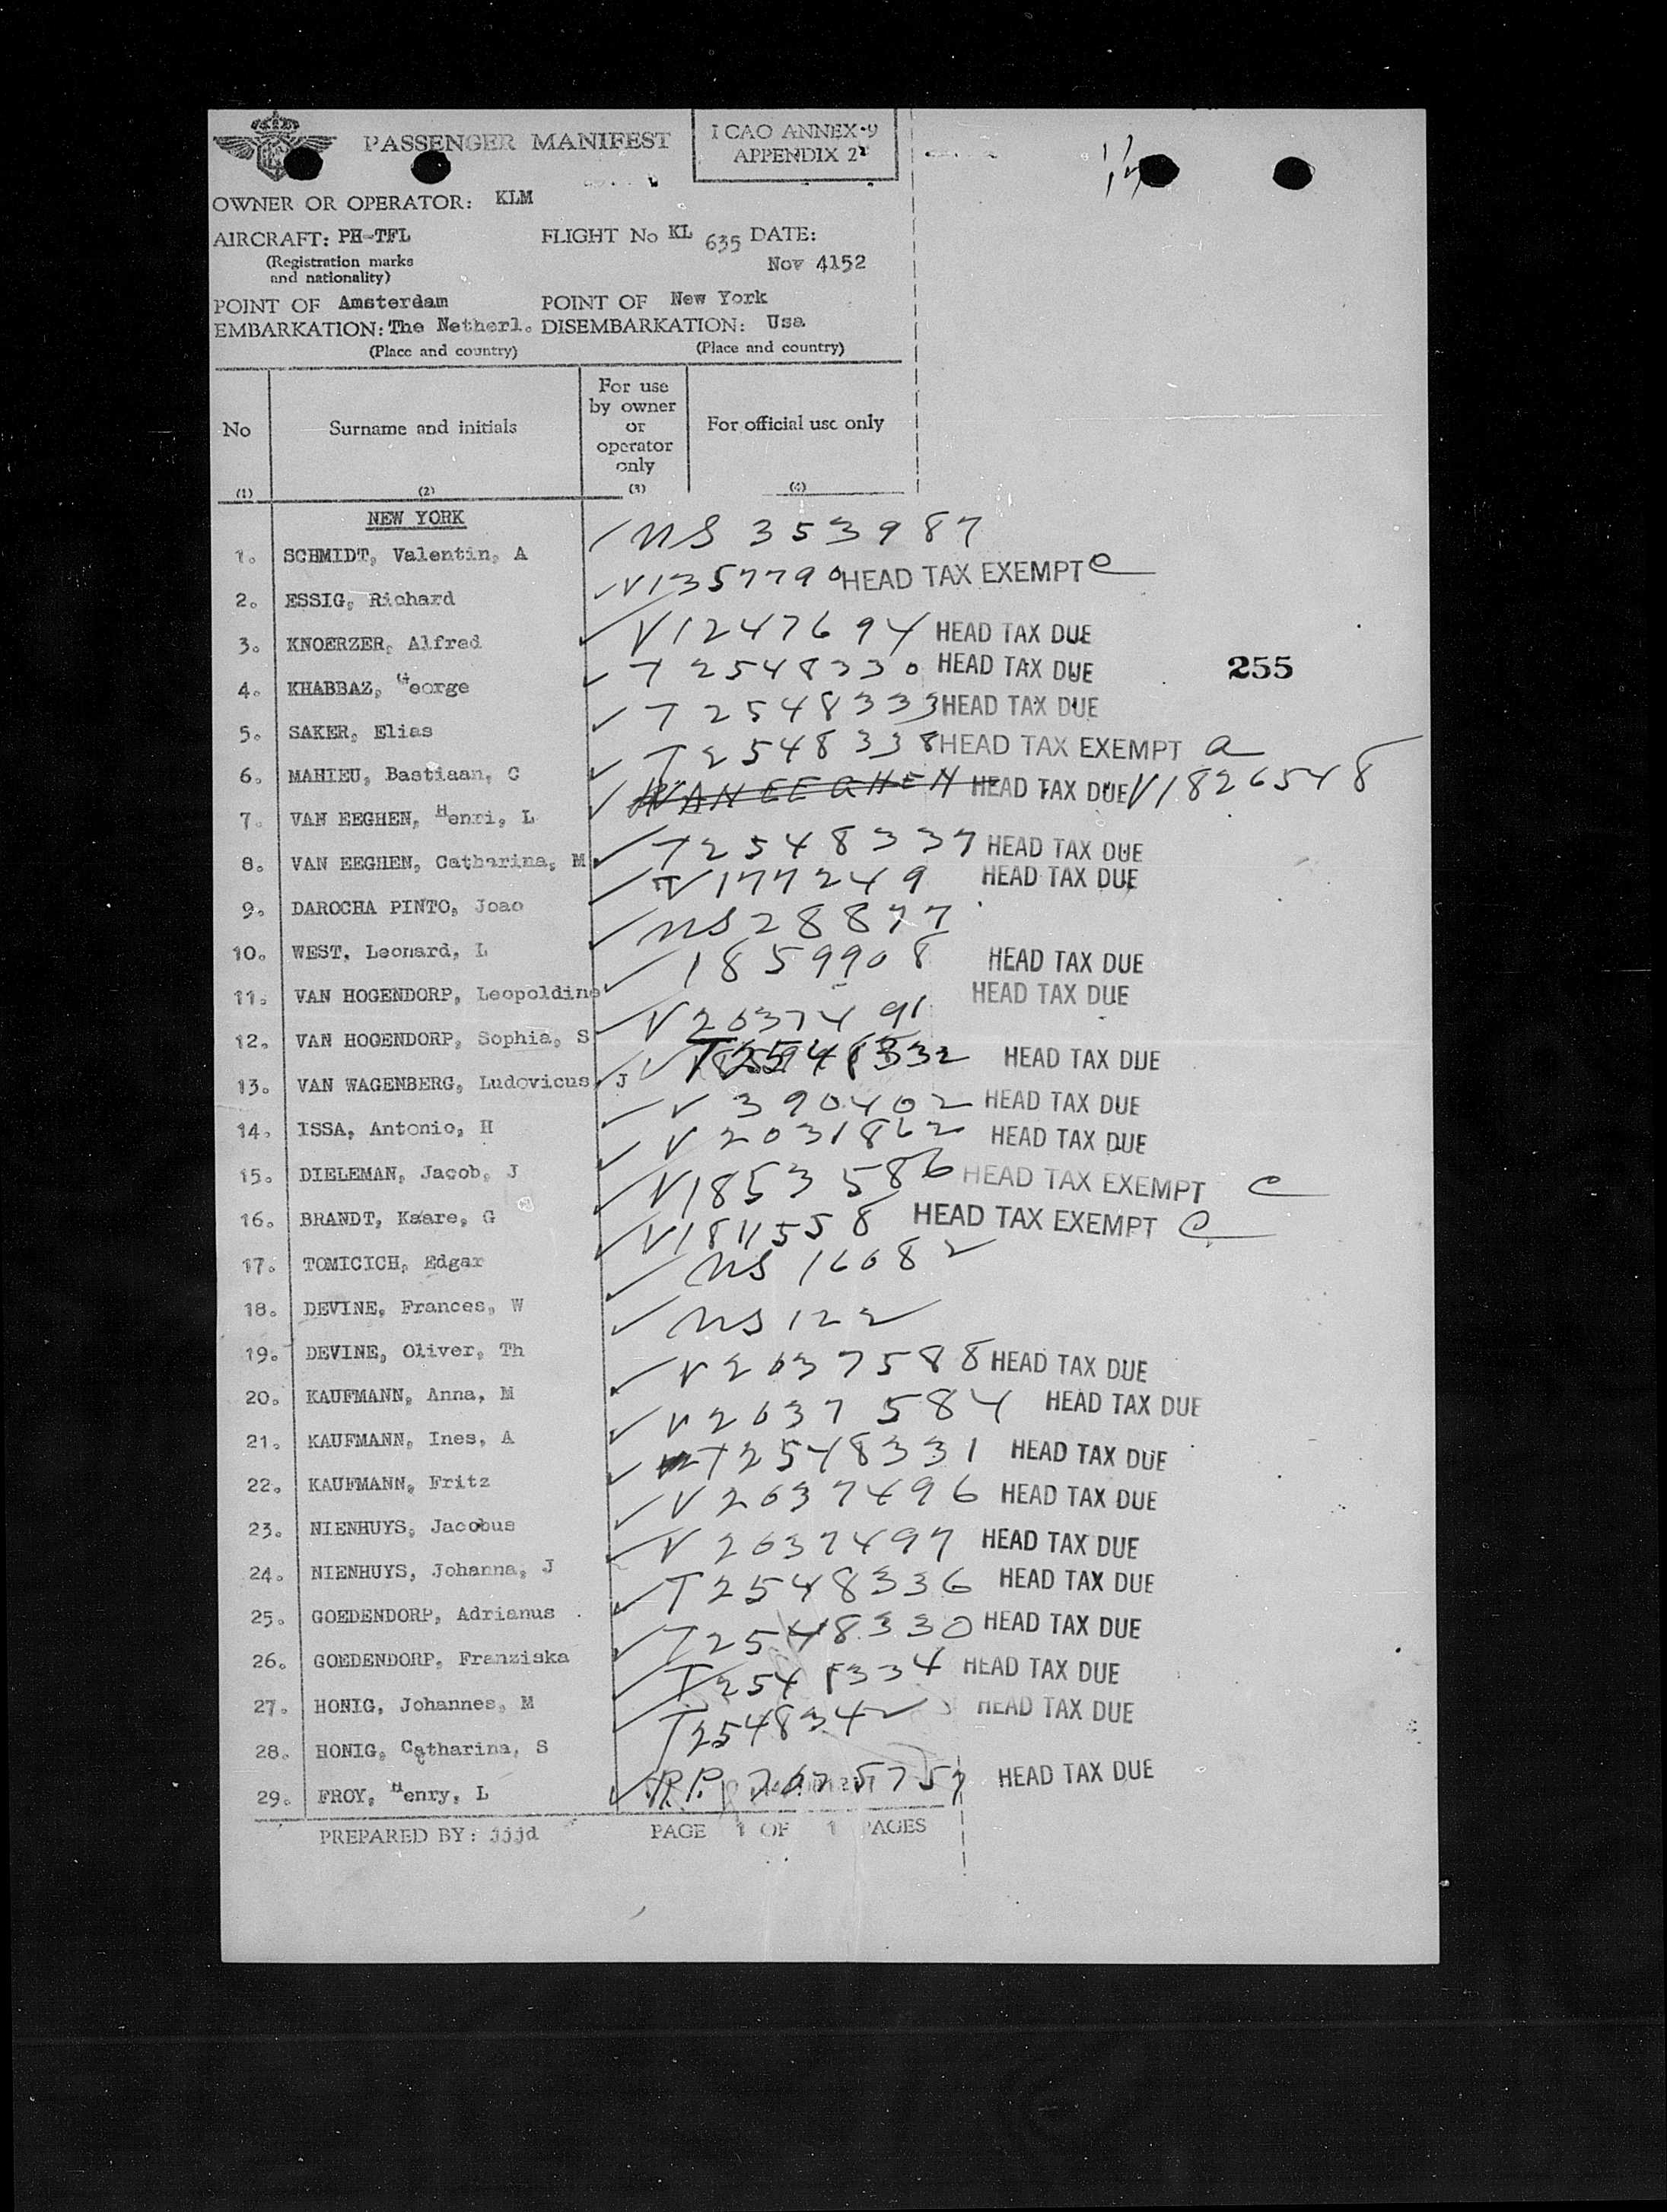 PASSENGER MANIFEST
I CAO ANNEX-9
APPENDIX 2
OWNER OR OPERATOR: KLM
AIRCRAFT: PH-TFL FLIGHT No KL 635 DATE:
(Registration marks
and nationality) Nov 4152
POINT OF Amsterdam POINT OF New York
EMBARKATION: The Netherl. DISEMBARKATION: Usa
(Place and country) (Place and country)
No Surname and initials For use by owner or operator only For official use only
(1) (2) (3) (4)
NEW YORK
1. SCHMIDT, Valentin, A NS 353987
2. ESSIG, Richard V1357790 HEAD TAX EXEMPT e
3. KNOERZER, Alfred V1247694 HEAD TAX DUE
4. KHABBAZ, George T 2548330 HEAD TAX DUE
255
5. SAKER, Elias T 2548333 HEAD TAX DUE
6. MAHIEU, Bastiaan, C T2548338 HEAD TAX EXEMPT a
7. VAN EEGHEN, Henri, L VAN EEGHEN HEAD TAX DUE V1826548
8. VAN EEGHEN, Catharina, M T2548337 HEAD TAX DUE
9. DAROCHA PINTO, Joao V177249 HEAD TAX DUE
10. WEST, Leonard, L NS 28877
11. VAN HOGENDORP, Leopoldine 1859908 HEAD TAX DUE
12. VAN HOGENDORP, Sophia, S V2037491 HEAD TAX DUE
13. VAN WAGENBERG, Ludovicus, J T2548332 HEAD TAX DUE
14. ISSA, Antonio, H V 390402 HEAD TAX DUE
15. DIELEMAN, Jacob, J V 2031862 HEAD TAX DUE
16. BRANDT, Kaare, G V1853586 HEAD TAX EXEMPT e
17. TOMICICH, Edgar V1811558 HEAD TAX EXEMPT e
18. DEVINE, Frances, W NS 16082
19. DEVINE, Oliver, Th NS 122
20. KAUFMANN, Anna, M V2037588 HEAD TAX DUE
21. KAUFMANN, Ines, A V2037584 HEAD TAX DUE
22. KAUFMANN, Fritz T2548331 HEAD TAX DUE
23. NIENHUYS, Jacobus V2037496 HEAD TAX DUE
24. NIENHUYS, Johanna, J V2037497 HEAD TAX DUE
25. GOEDENDORP, Adrianus T2548336 HEAD TAX DUE
26. GOEDENDORP, Franziska T2548330 HEAD TAX DUE
27. HONIG, Johannes, M T2548334 HEAD TAX DUE
28. HONIG, Catharina, S T2548342 HEAD TAX DUE
29. FROY, Henry, L HEAD TAX DUE
PREPARED BY: jjjd PAGE 1 OF 1 PAGES